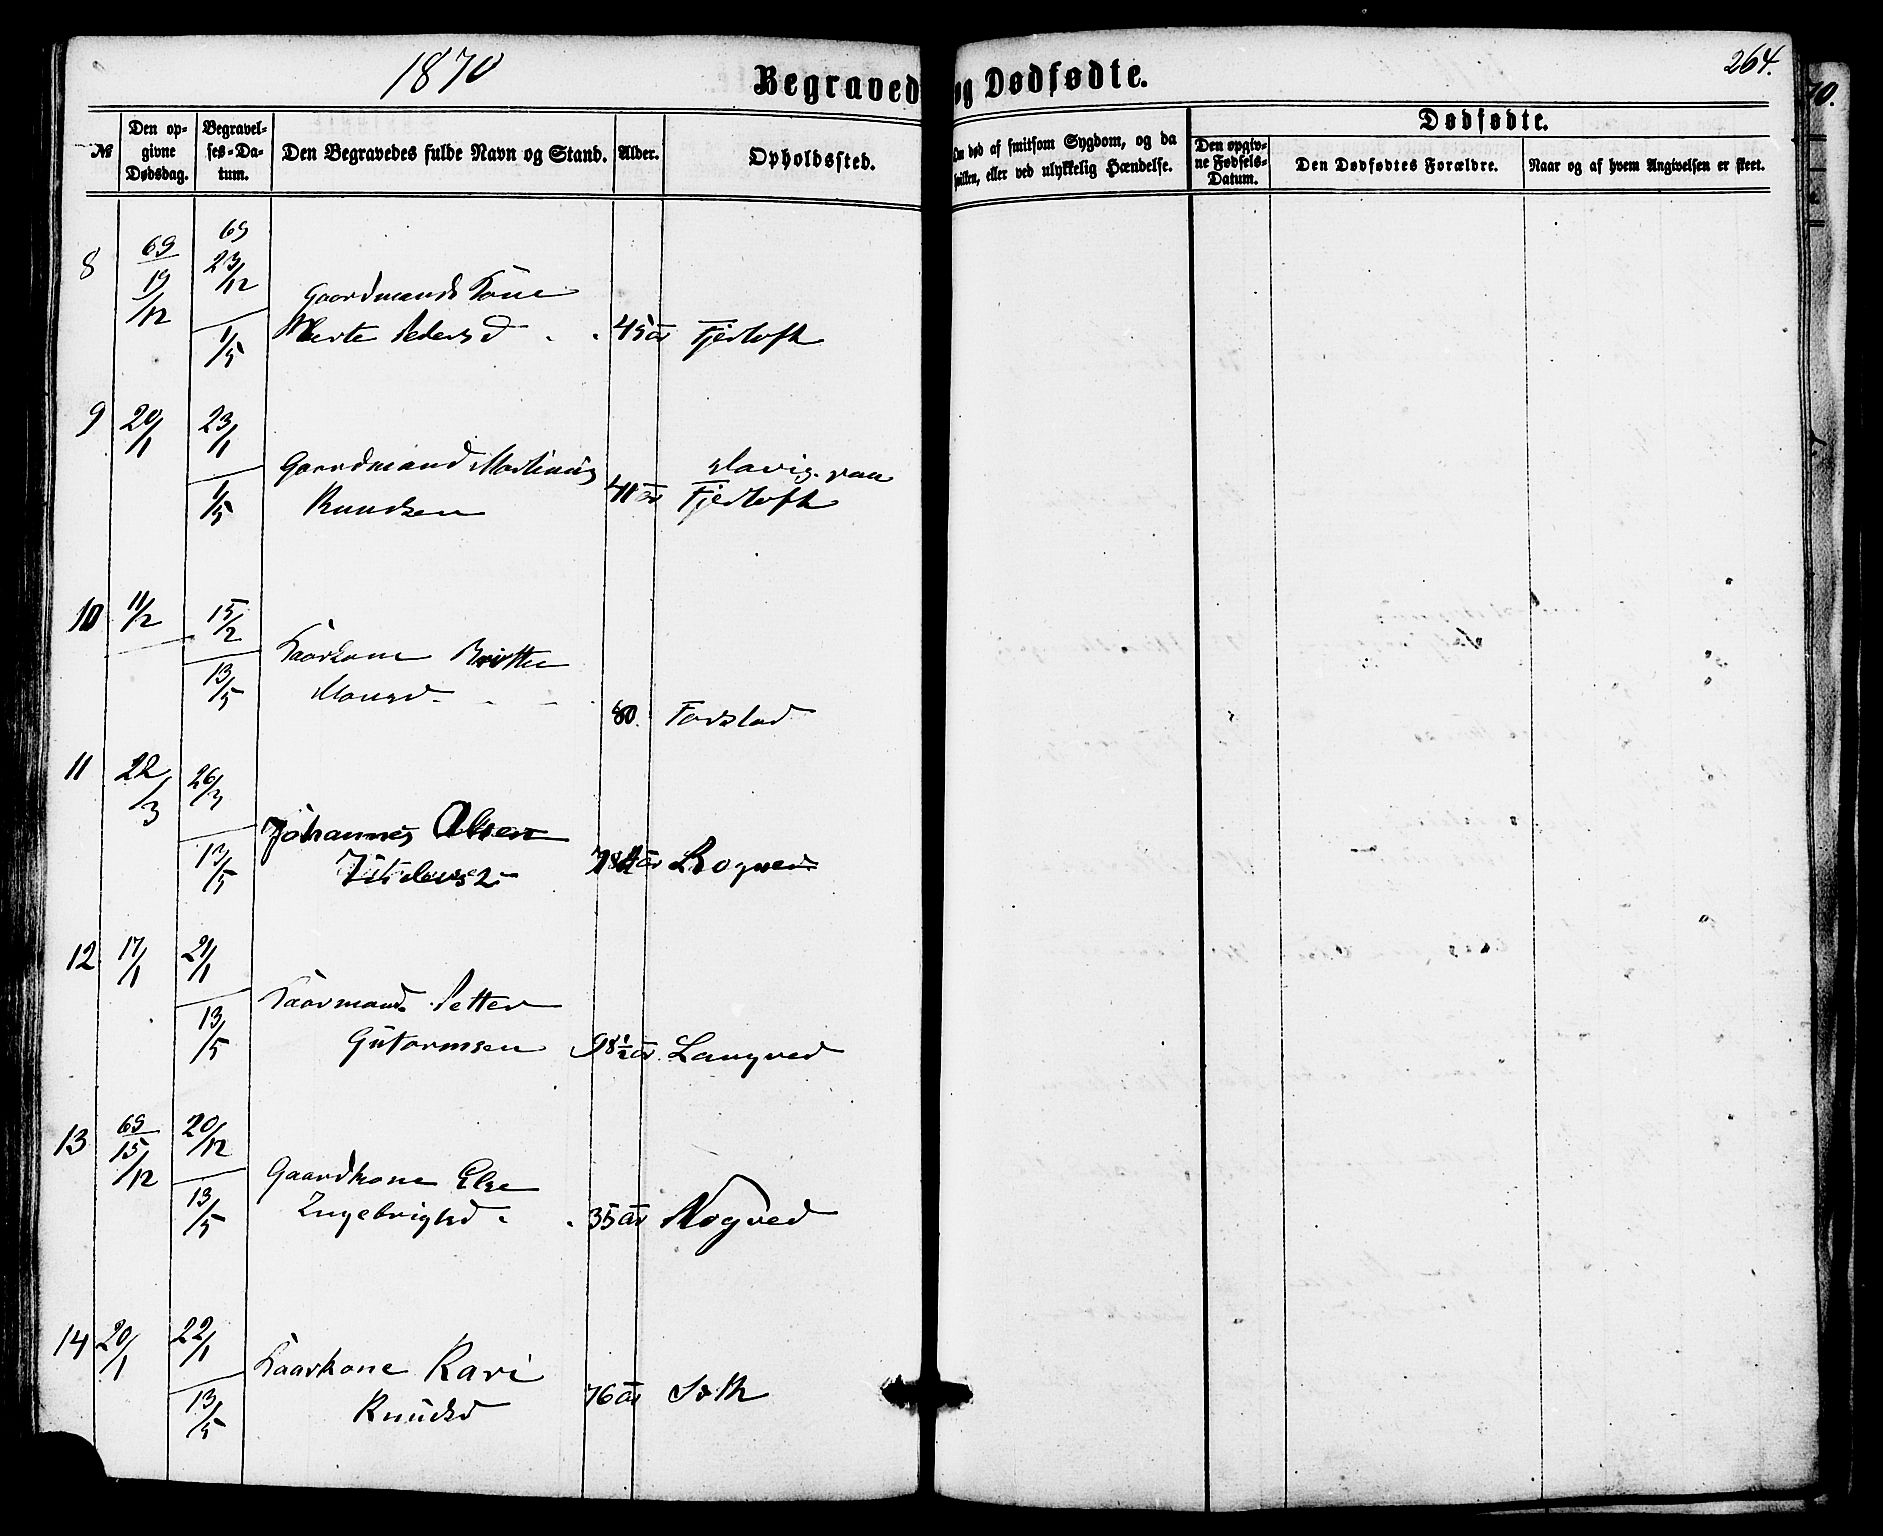 1870
264.
Begravede og Dødfødte.
№
Den opgivne Dødsdag.
Begravelses-Datum.
Den Begravedes fulde Navn og Stand.
Alder.
Opholdssted.
Om død af smitsom Sygdom, og da hvilken, eller ved ulykkelig Hændelse.
Dødfødte.
Den opgivne Fødsels-Datum.
Den Dødfødtes Forældre.
Naar og af hvem Angivelsen er skeet.
8 69 19/12 69 23/12 1/5
Gaardmands Kone
Merte Pedersd 45 år Fjeltoft
9 20/1 23/1 1/5
Gaardmand Martinus
Knudsen 41 år Fjeltoft
10 11/2 15/2 13/5
Kaarkone Britte
Monsd 80.
11 22/3 26/3 13/5
Johannes Olsen
Rogned
12 17/1 21/1 13/5
Kaarmand Petter
Gutormsen 98 1/2 år. Langved
13 69 15/12 20/12 13/5
Gaardkone Else
Ingebrigtsd 35 år Rogned
14 20/1 22/1 13/5
Kaarkone Kari
Knudsd 76 år